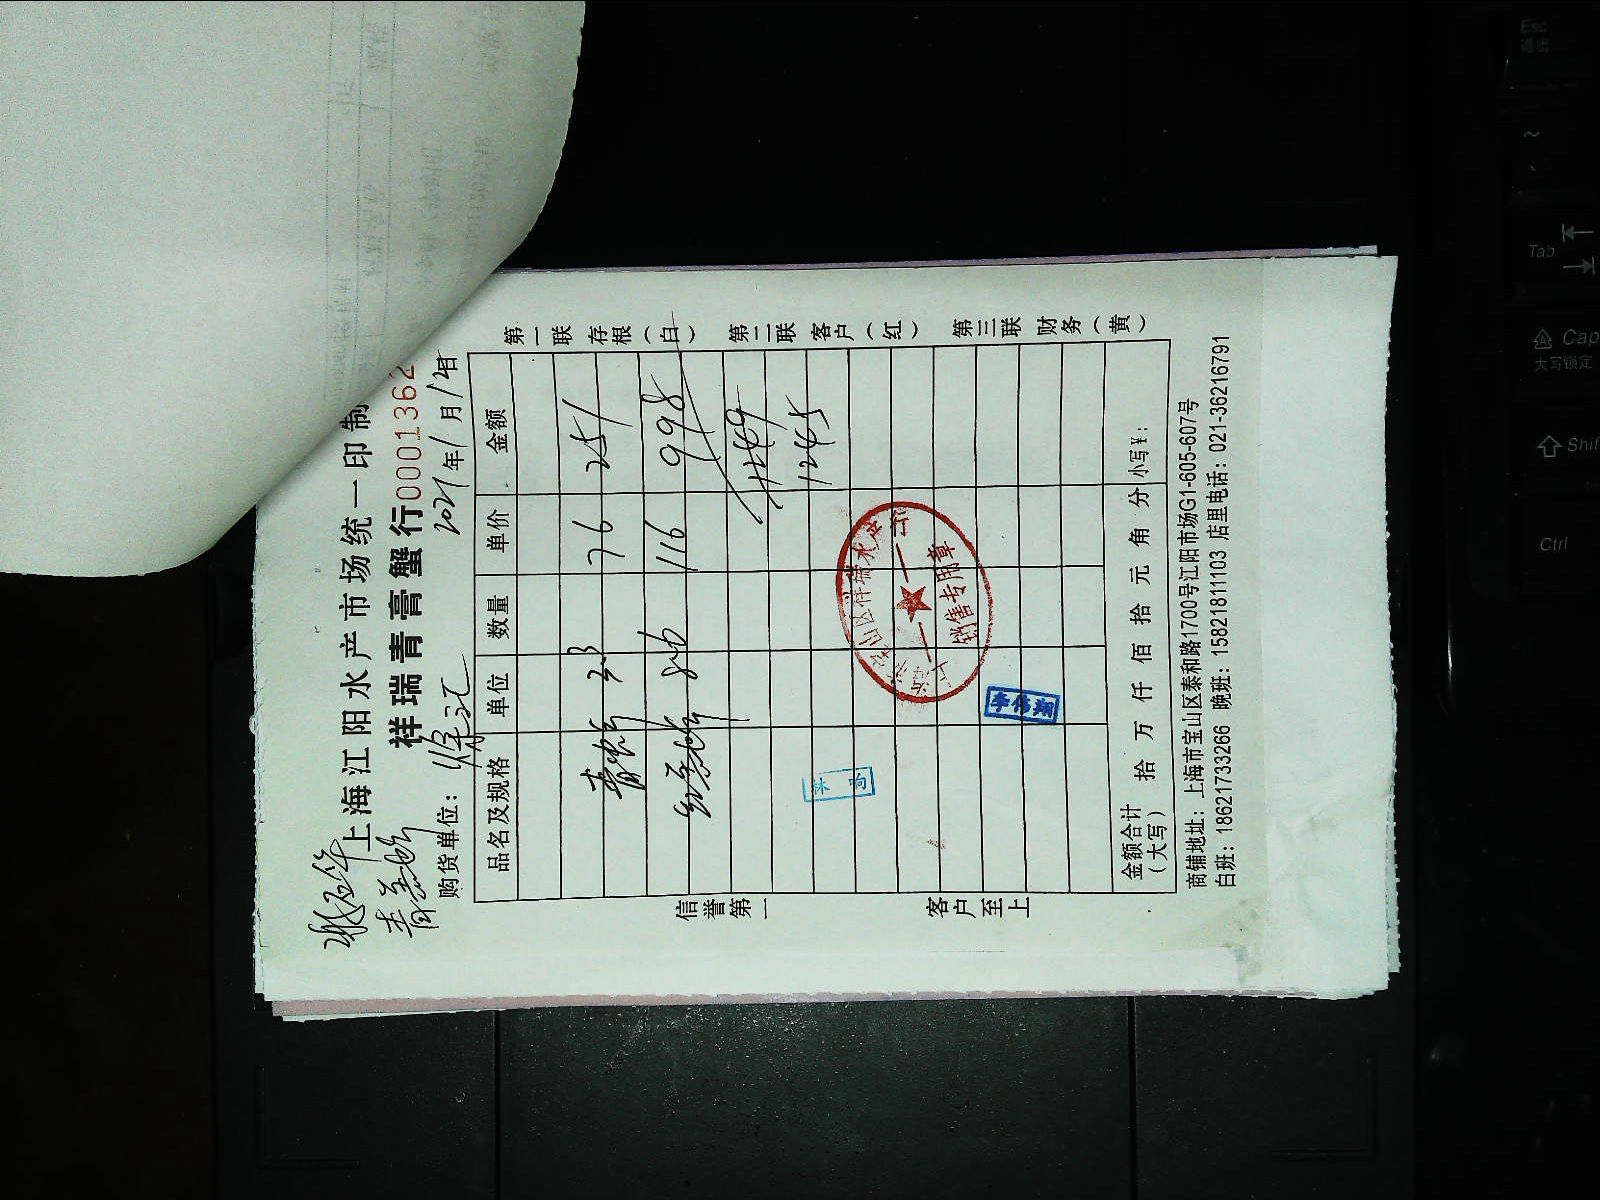 上海江阳水产市场统一印制
祥瑞青膏蟹行 0001362
购货单位： 徐汇 2021年1月14日
品名及规格 单位 数量 单价 金额
青蟹 3.3 76 251
红膏蟹 8.6 116 998
1249
1245
金额合计
（大写） 拾 万 仟 佰 拾 元 角 分 小写￥：
商铺地址：上海市宝山区泰和路1700号江阳市场G1-605-607号
白班：18621733266 晚班：15821811103 店里电话：021-36216791
第一联 存根（白） 第二联 客户（红） 第三联 财务（黄）
信誉第一 客户至上
销售专用章
李伟翔
Esc
退出
~
Tab
Cap
大写锁定
Shif
Ctrl